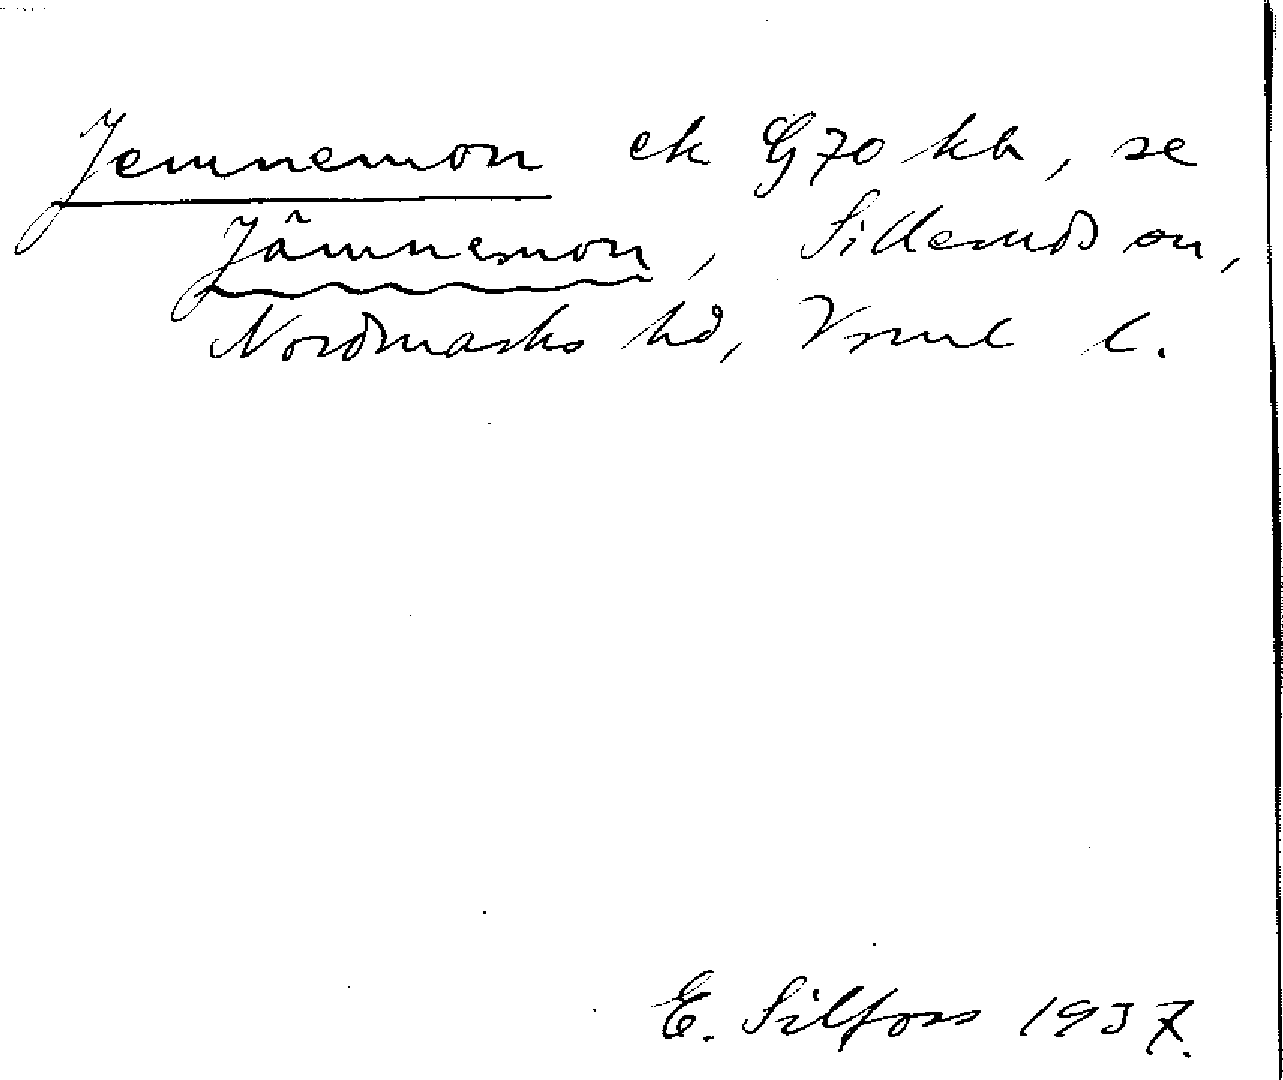 Jemnemon ek G70 kb, se
Jämnemon, Silleruds sn,
Nordmarks hd, Vrml l.
E. Silfors 1937.